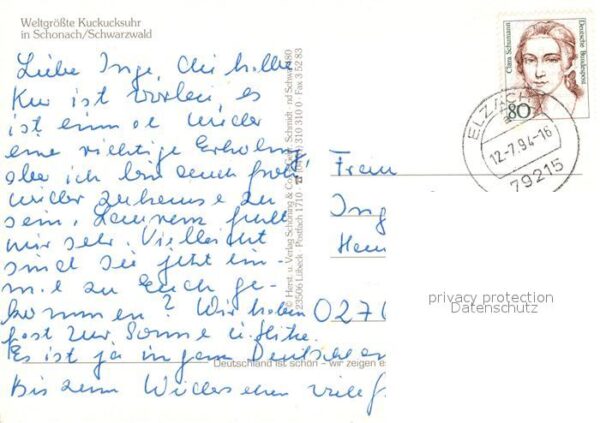 Weltgrößte Kuckucksuhr
in Schonach/Schwarzwald
Liebe Inge, die halbe
Kur ist vorbei, es
ist einmal wieder
eine richtige Erholung
aber ich bin auch froh,
wieder zuhause zu
sein. fehlt
mir sehr. Vielleicht
sind sie jetzt ein-
mal zu Euch ge-
kommen? Wir haben
fast zur Sonne u. Hitze.
Es ist ja in ganz Deutschland
Bis zum Wiedersehen viele
Deutschland ist schön - wir zeigen es
© Herst. u. Verlag Schöning & Co + Gebr. Schmidt
23506 Lübeck · Postfach 1710 · 310 310 0 · Fax 3 52 83
Clara Schumann
Deutsche Bundespost
80
ELZACH
12.-7.94-16
79215
Frau
Ing
0276
privacy protection
Datenschutz